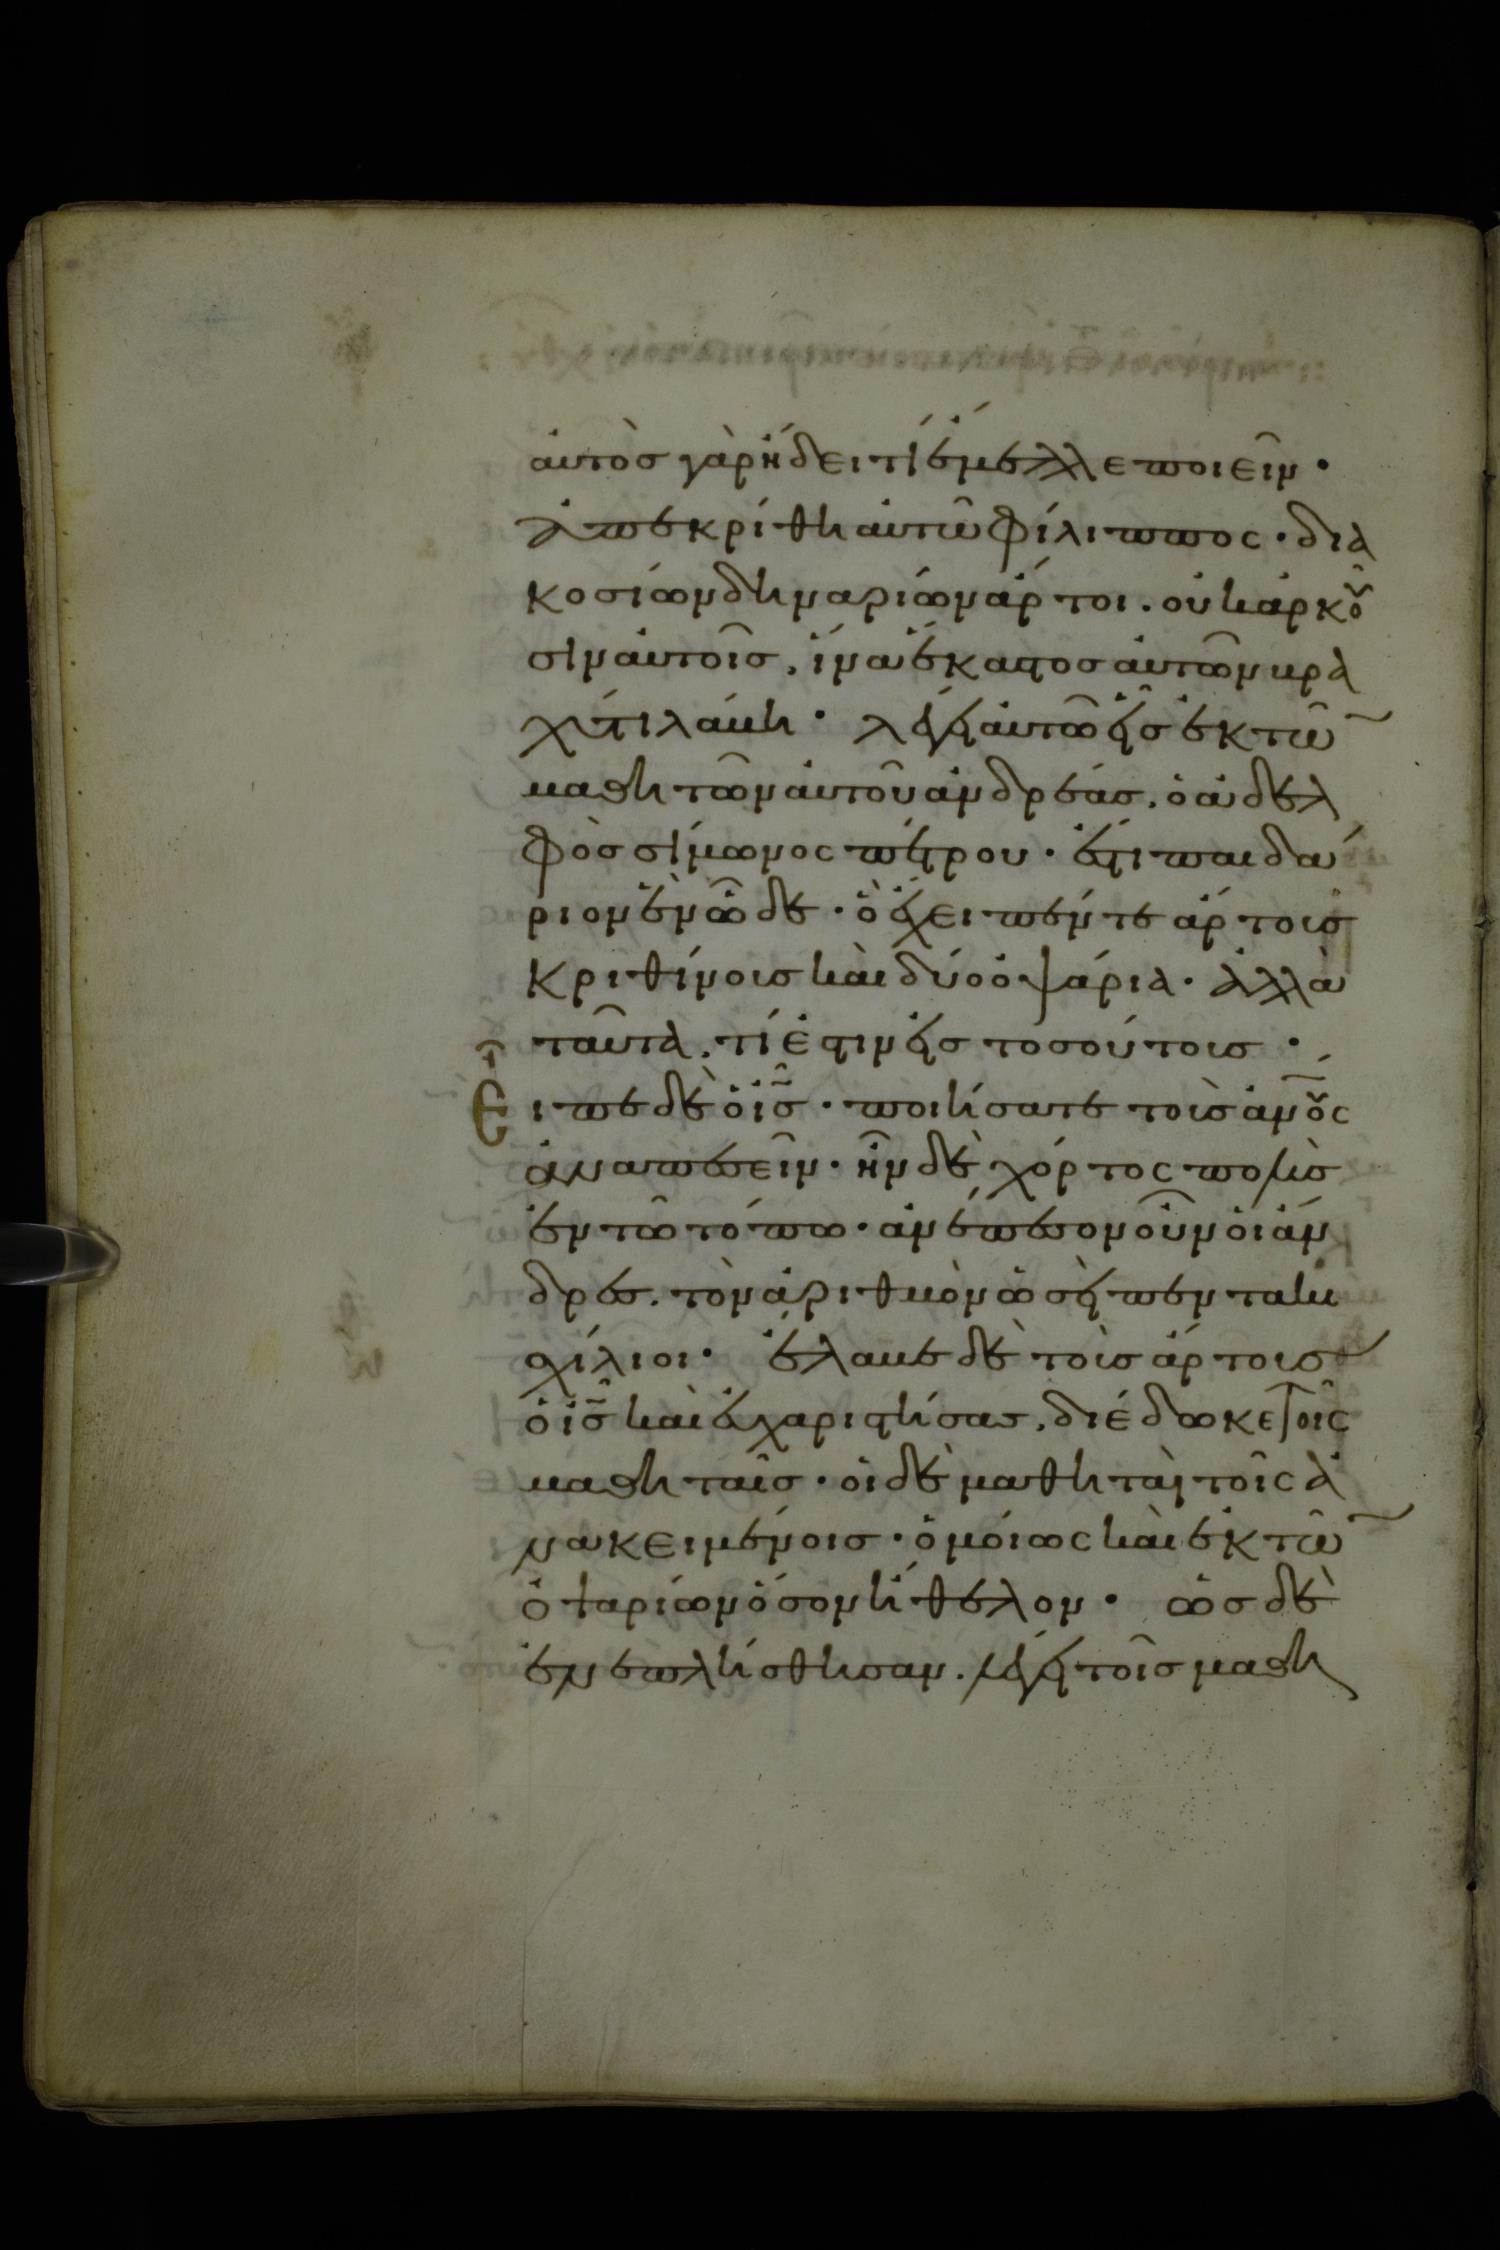 αυτὸσ γὰρ ἤδει τί έμελλε ποιεῖν ·
ἀπεκρίθη αυτῶ φίλιππος · δια
κοσίων δηναρίων άρτοι . ουκ αρκοῦ
σιν αυτοῖσ , ίνα έκαστοσ αυτῶν βρα
χύ τι λάβη · λέγει αυτῶ εῖσ εκ τῶ
μαθητῶν αυτοῦ ανδρέασ , ο αδελ
φὸσ σίμωνος πέτρου · έστι παιδά
ριον ὲν ῶδε · ὸ έχει πέντε άρτουσ
κριθίνουσ καὶ δύο οψάρια · ἀλλὰ
ταῦτα , τί εστιν εισ τοσούτουσ ·
Ειπε δὲ ο ις̅ · ποιήσατε τοὺσ αν̅ο̅υ̅ς̅
αναπεσεῖν · ῆν δὲ χόρτος πολὺσ
εν τῶ τόπω · ανέπεσον οῦν οι άν
δρεσ . τὸν αριθμὸν ωσεὶ πεντακι
χίλιοι · έλαβε δὲ τοὺσ άρτουσ
ο ις̅ καὶ ευχαριστήσασ , διέδωκε τοῖς
μαθηταῖσ · οι δὲ μαθηταὶ τοῖς α
νακειμένοισ · ομοίως καὶ εκ τῶ
οψαρίων όσον ήθελον · ωσ δὲ
ενεπλήσθησαν . λέγει τοῖσ μαθη